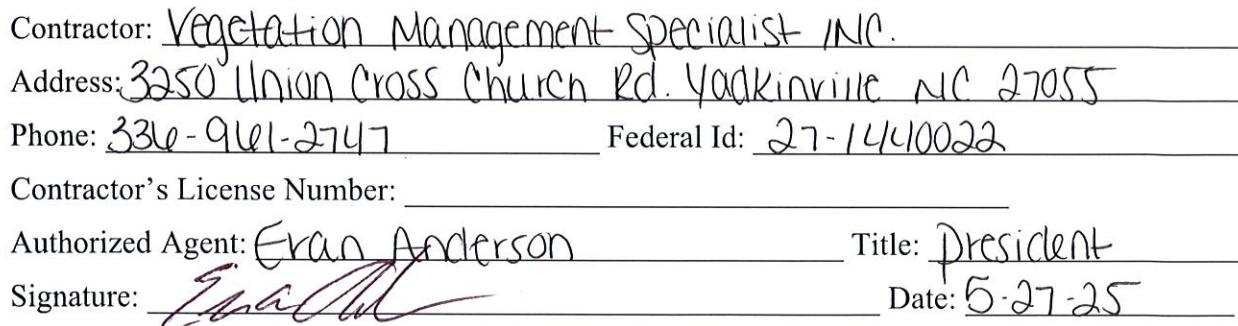 Contractor: Vegetation Management Specialist INC.
Address: 3250 Union Cross Church Rd. Yadkinville NC 27055
Phone: 336-961-2747 Federal Id: 27-1440022
Contractor's License Number:
Authorized Agent: Evan Anderson Title: President
Signature: Date: 5-27-25